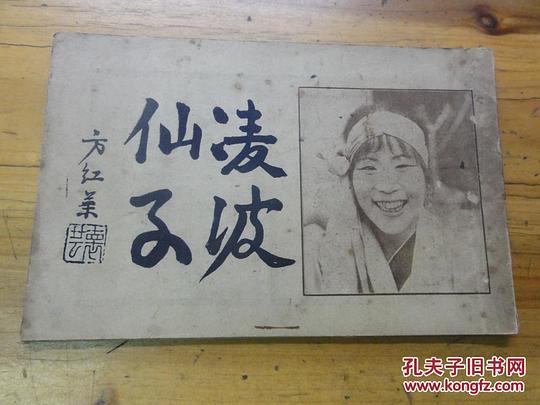 凌波
仙子
方红叶
孔夫子旧书网
www.kongfz.com